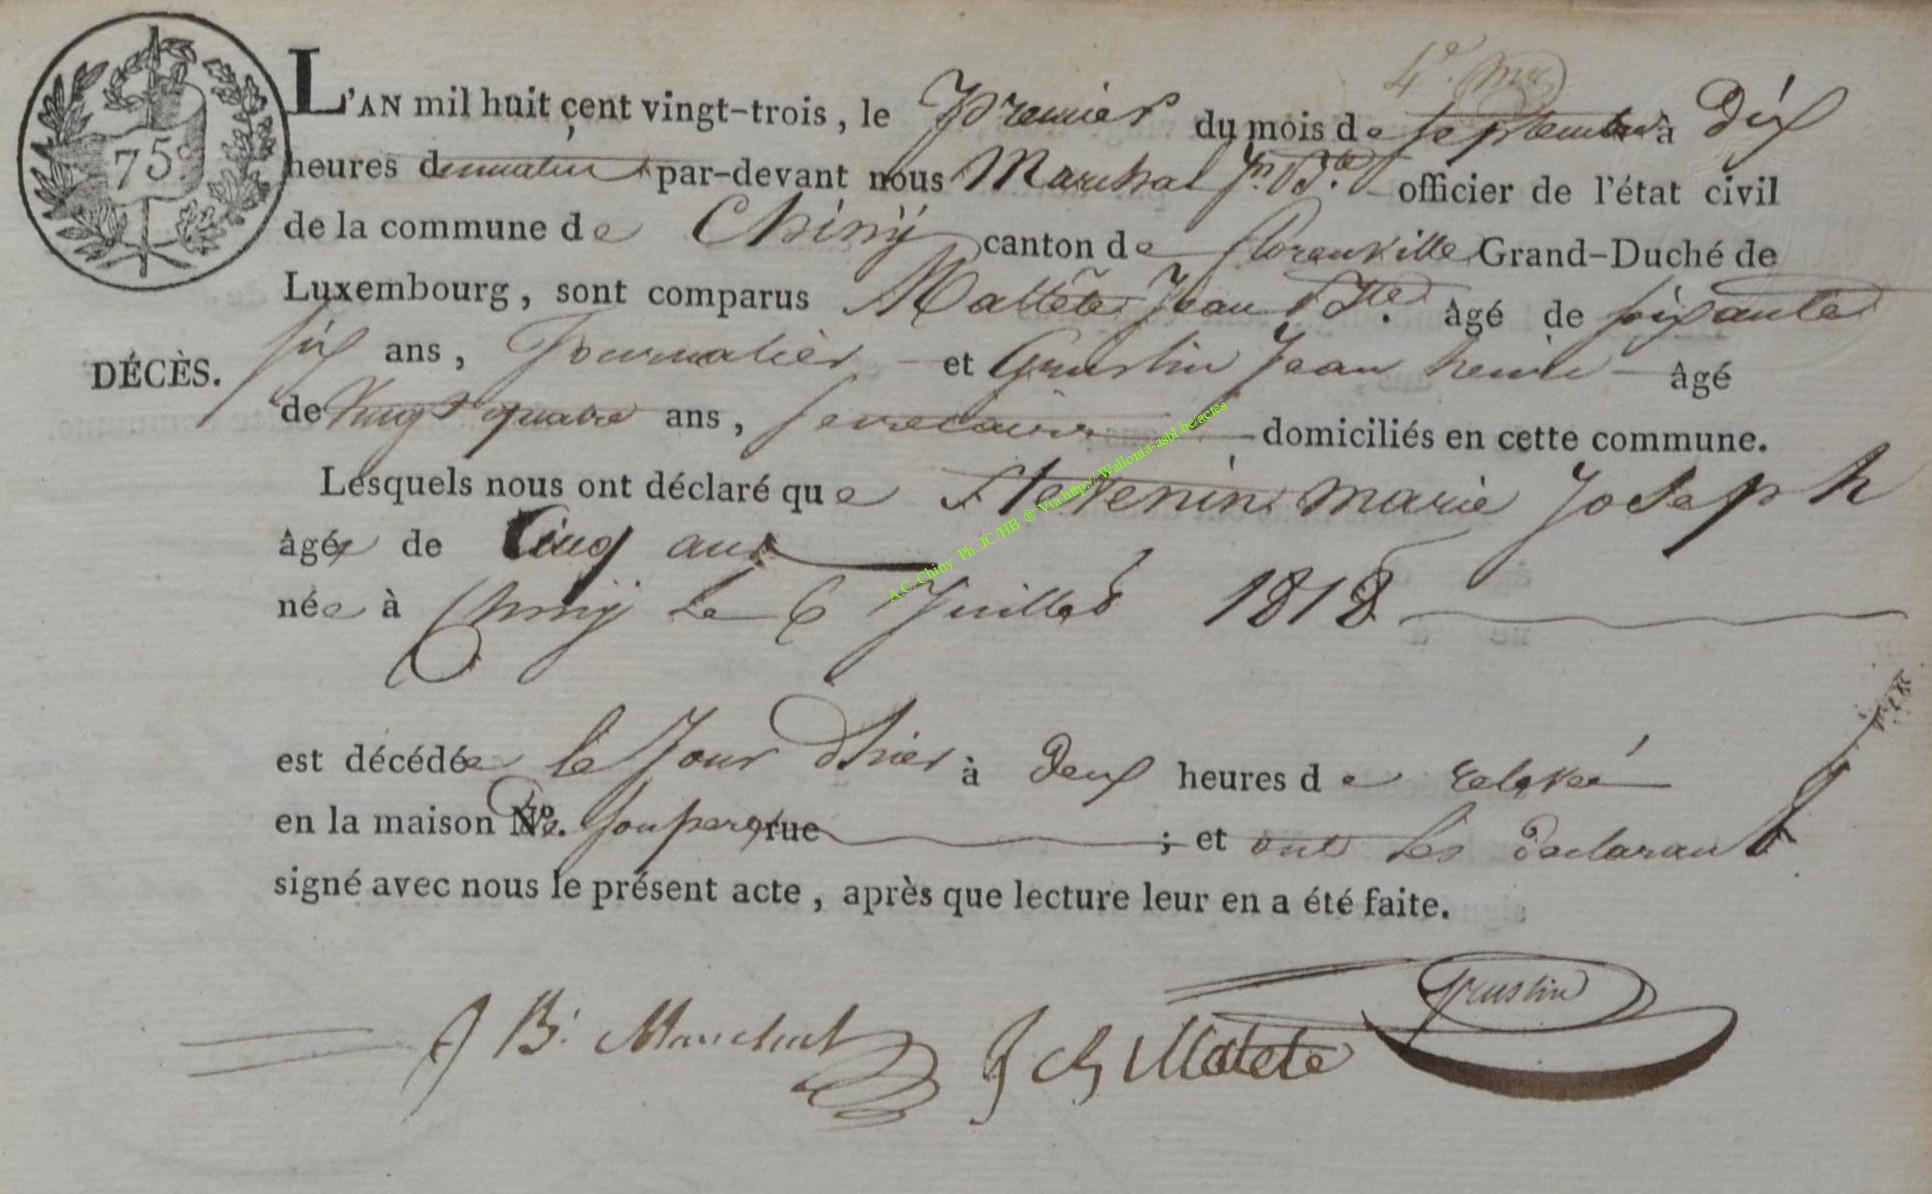 4e.
75c
L'AN mil huit cent vingt-trois, le premier du mois de septembre à Dix
heures du matin par-devant nous Marchal Jn. Bte. officier de l'état civil
de la commune de Chinÿ canton de florenville Grand-Duché de
Luxembourg, sont comparus Maltête Jean Bte. âgé de soixante
six ans, Journalier et Grustin Jean henri âgé
DÉCÈS.
de vingt quatre ans, secretaire domiciliés en cette commune.
Lesquels nous ont déclaré que Stevenin marie Joseph
âgée de Cinq ans
née à Chinÿ le 6 Juillet 1818
est décédée le Jour dhier à deux heures de relevé
en la maison No. De son pere rue ; et ont les declarant
signé avec nous le présent acte, après que lecture leur en a été faite.
J B. Marchal J Matete Grustin
A.C. Chiny Ph JC/HB ® Via http://Wallonia-asbl.be/actes